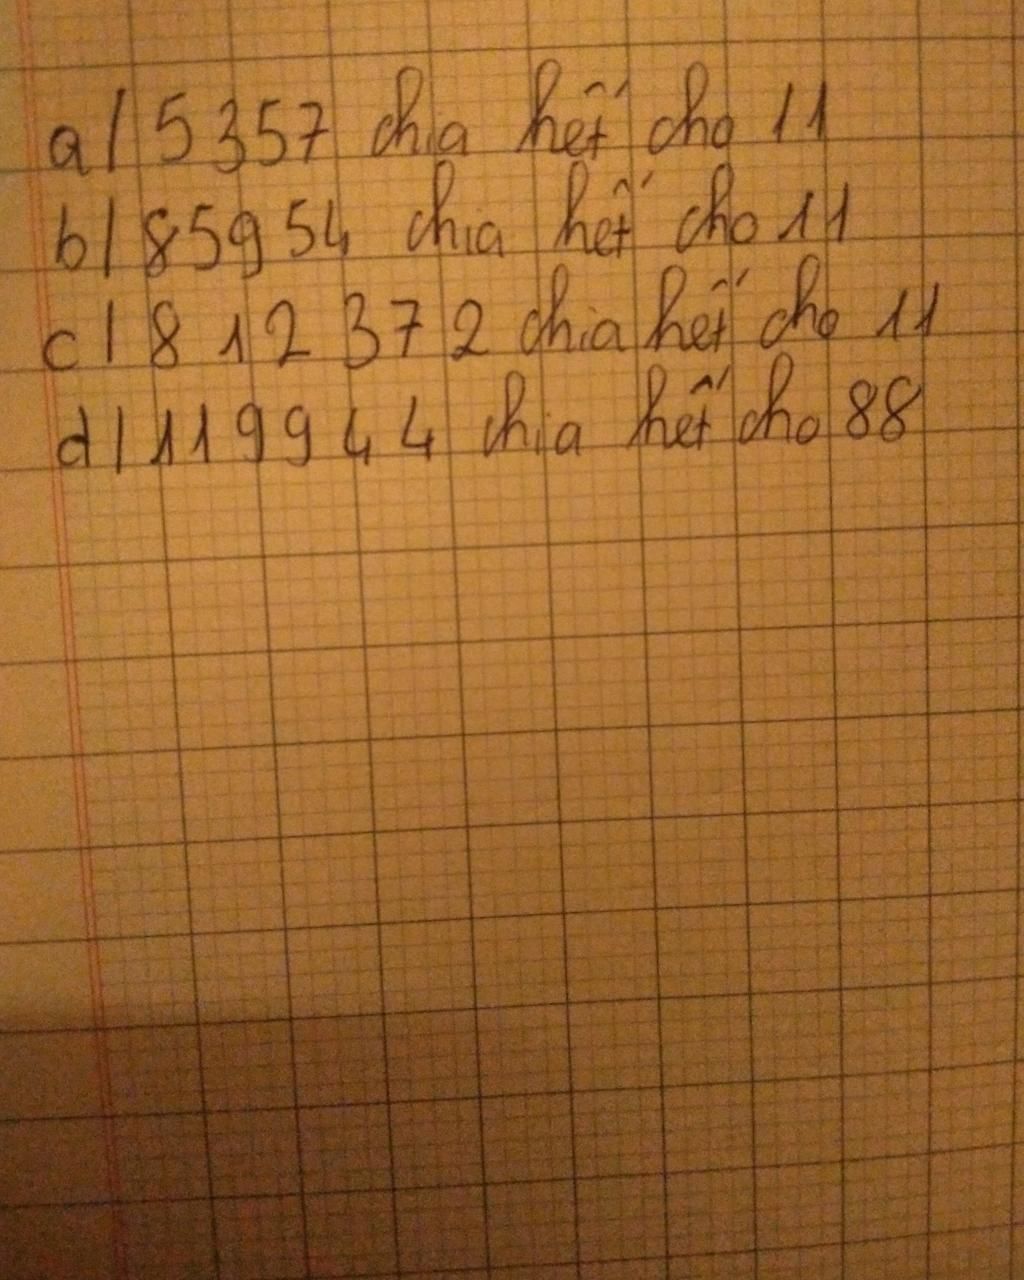 a/ 5357 chia hết cho 11
b/ 85954 chia hết cho 11
c/ 812372 chia hết cho 11
d/ 119944 chia hết cho 88